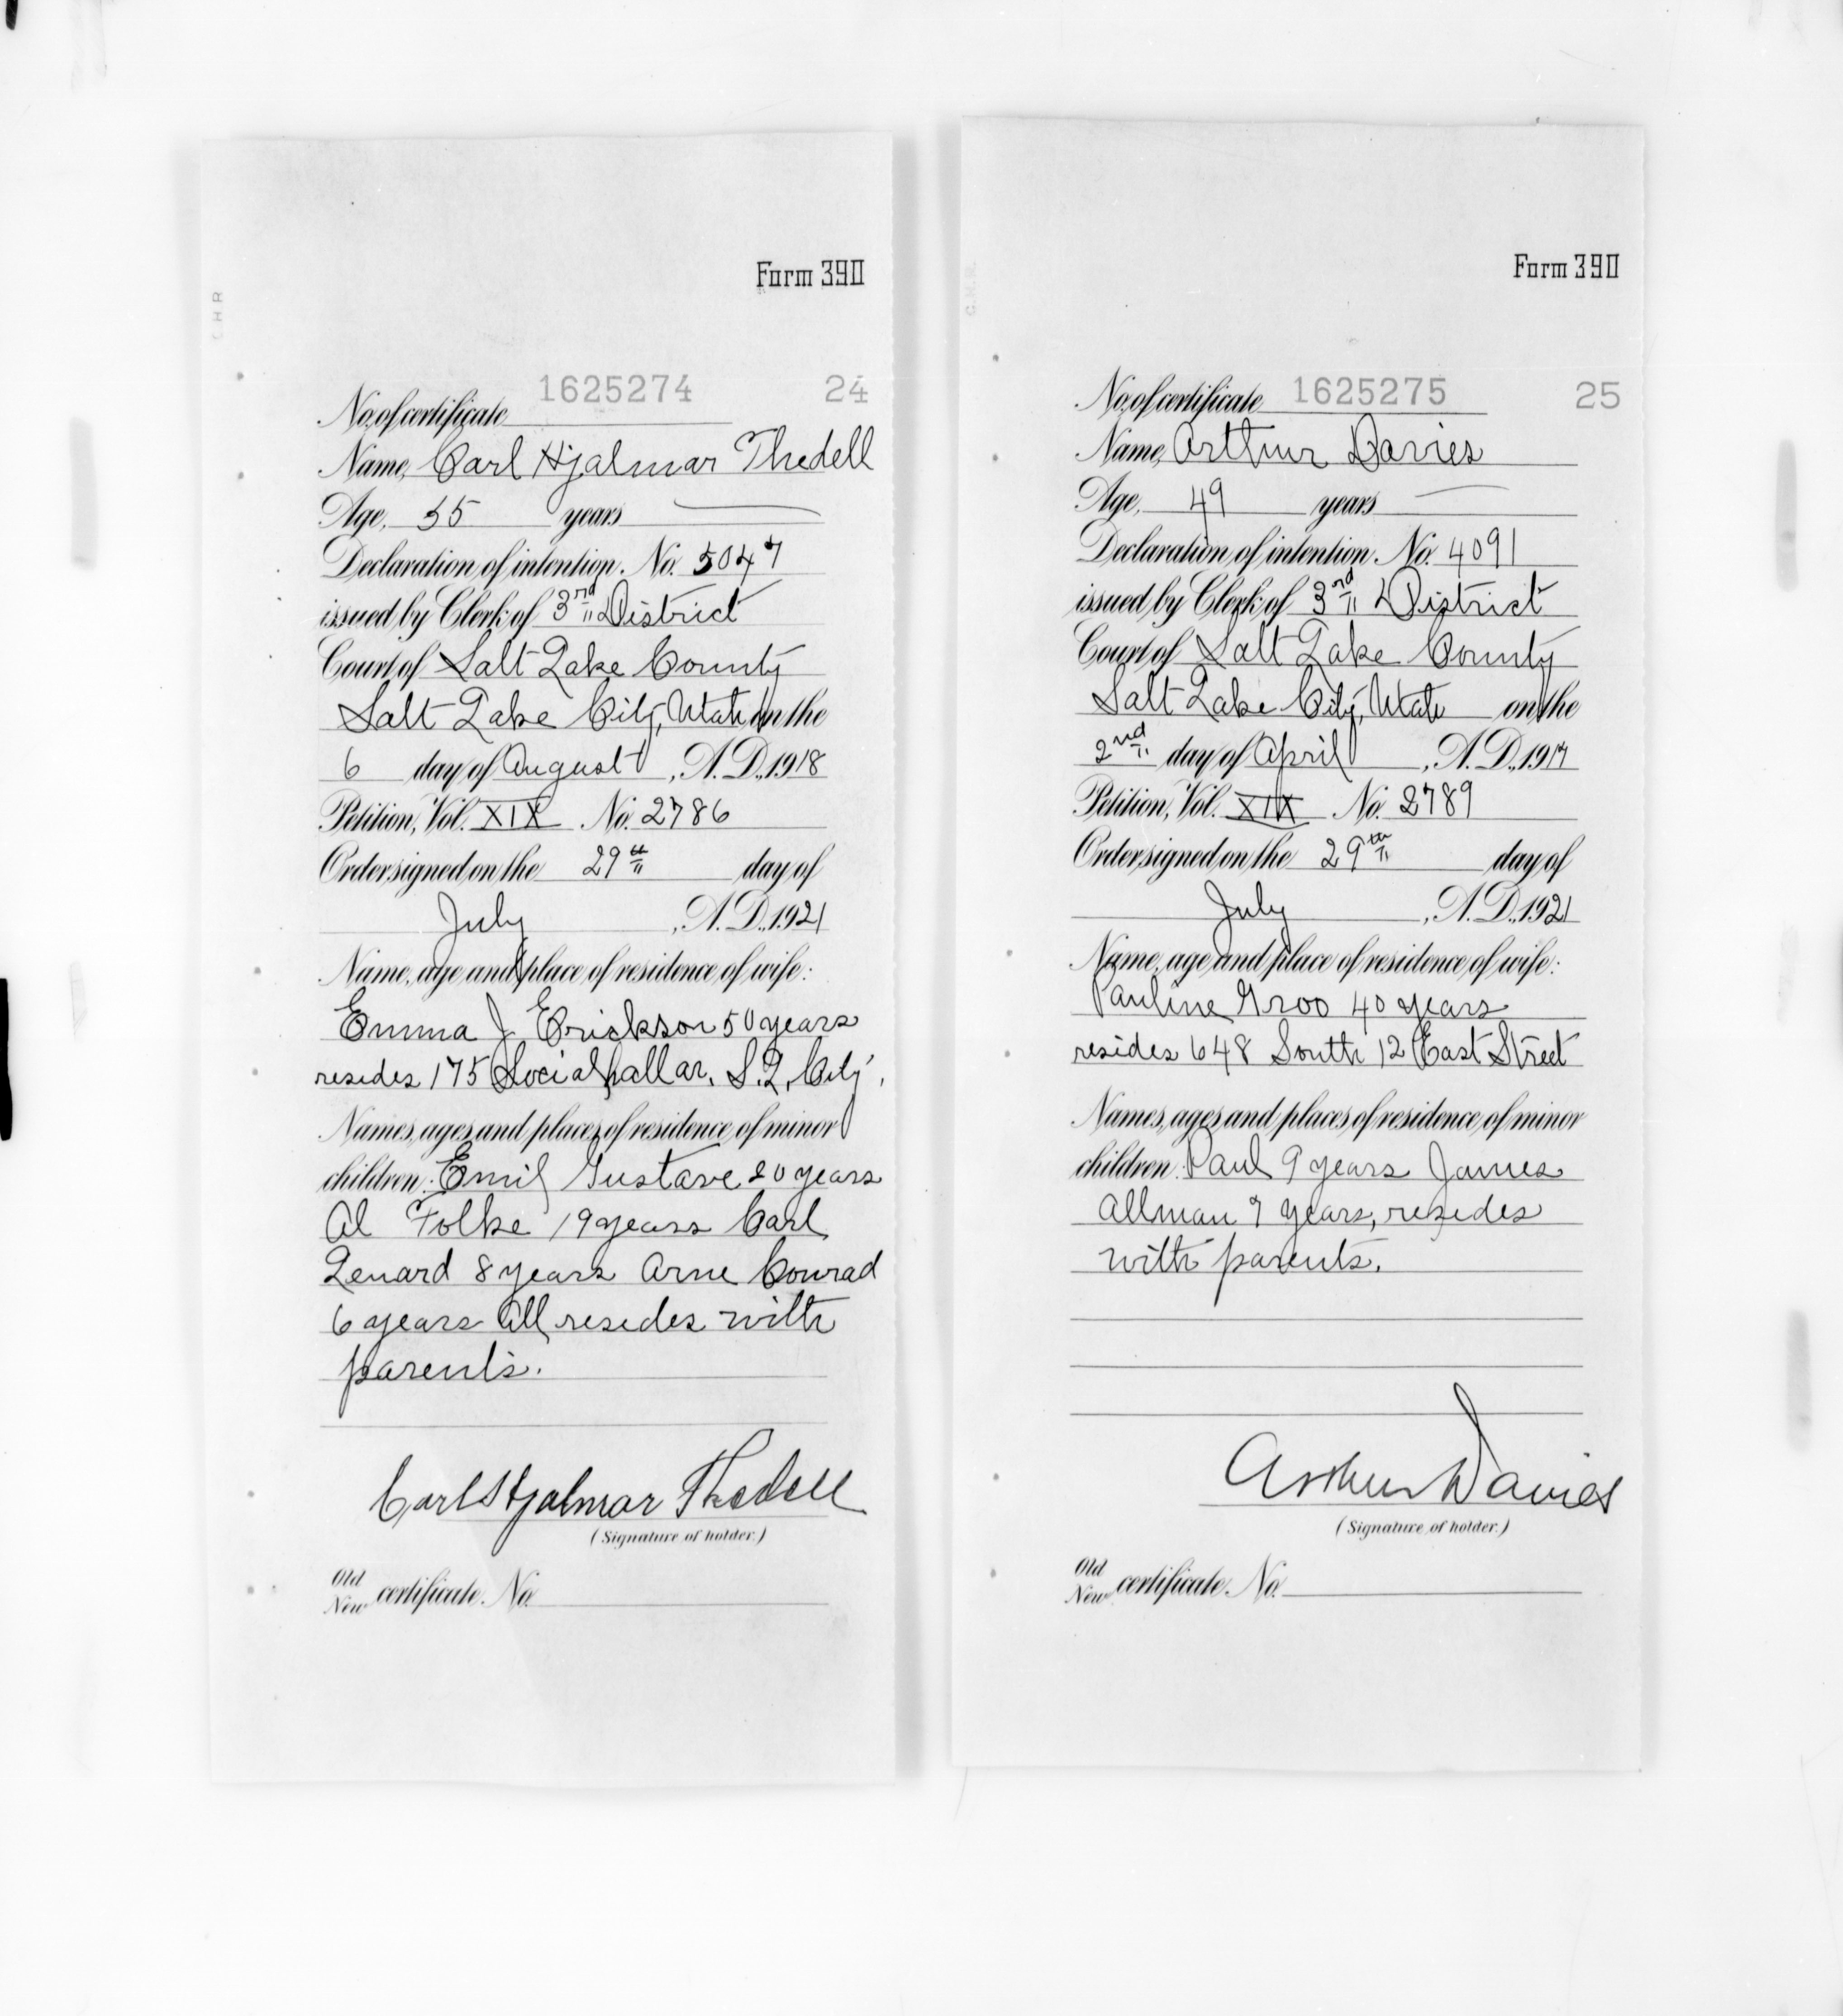 Form 390
C H R
1625274 24
No. of certificate
Name, Carl Hjalmar Thedell
Age, 55 years
Declaration of intention, No. 5047
issued by Clerk of 3rd District
Court of Salt Lake County
Salt Lake City, Utah on the
6 day of August, A.D., 1918
Petition, Vol. XIX No. 2786
Order signed on the 29th day of
July, A.D., 1921
Name, age and place of residence of wife:
Emma J. Erickson 50 years
resides 175 Social hall av. S. L. City.
Names, ages and places of residence of minor
children: Emil Gustave 20 years
Al Folke 19 years Carl
Lenard 8 years Arne Conrad
6 years All resides with
parents.
Carl Hjalmar Thedell
(Signature of holder.)
Old
New certificate No.
Form 390
No. of certificate 1625275 25
Name, Arthur Davies
Age, 49 years
Declaration of intention, No. 4091
issued by Clerk of 3rd District
Court of Salt Lake County
Salt Lake City, Utah on the
2nd day of April, A.D., 1917
Petition, Vol. XIX No. 2789
Order signed on the 29th day of
July, A.D., 1921
Name, age and place of residence of wife:
Pauline Groo 40 years
resides 648 South 12 East Street
Names, ages and places of residence of minor
children: Paul 9 years James
Allman 7 years, resides
with parents.
Arthur Davies
(Signature of holder.)
Old
New certificate No.